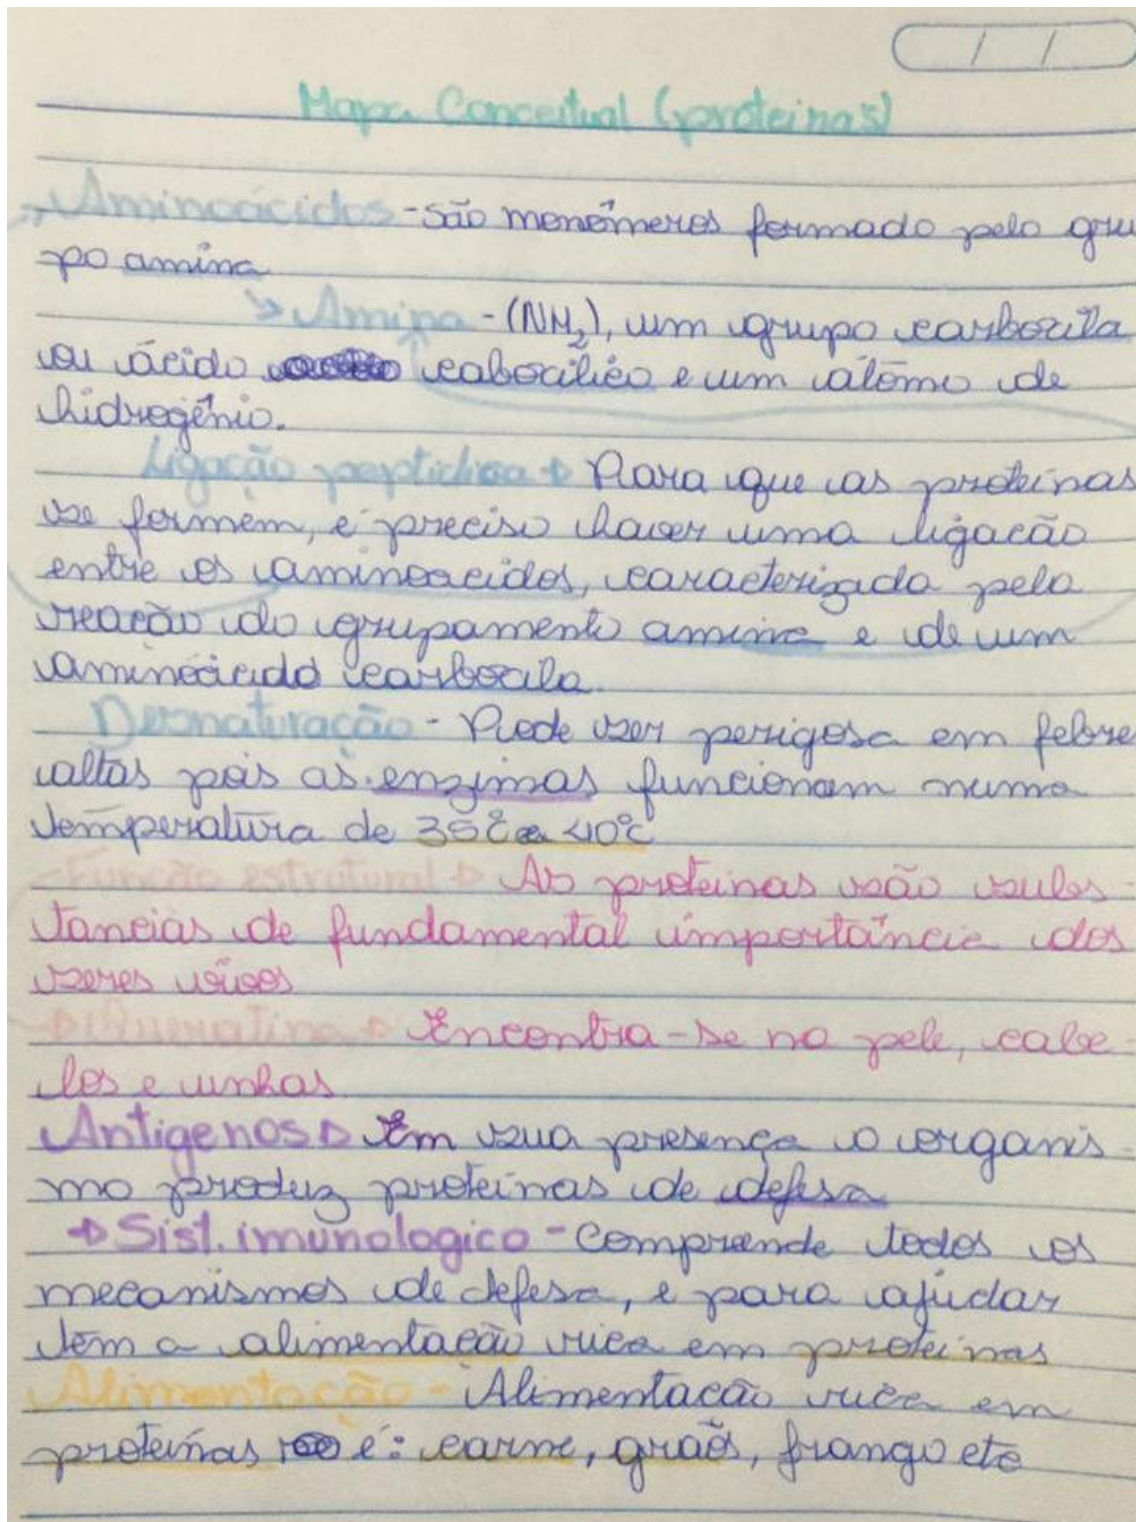 Mapa Conceitual (proteinas)
Aminoácidos - são monômeros formado pelo gru
po amina
Amina - (NH2), um grupo carboxila
ou ácido caboxilico e um atômo de
hidrogênio.
Ligação peptidica Para que as proteinas
se formem, é preciso haver uma ligacão
entre os aminoacidos, caracterizada pela
reacão do grupamento amina e de um
aminoácido carboxila.
Desnaturação - Pode ser perigosa em febre
altas pois as enzimas funcionam numa
temperatura de 35°C a 40°C
Função estrutural As proteinas são subs-
tancias de fundamental importância dos
seres vivos
Queratina Encontra-se na pele, cabe-
los e unhas
Antigenos Em sua presença o organis-
mo produz proteinas de defesa
Sist. imunologico - Compreende todos os
mecanismos de defesa, e para ajudar
tem a alimentacão rica em proteinas
Alimentação - Alimentacão rica em
proteinas é: carne, graõs, frango etc